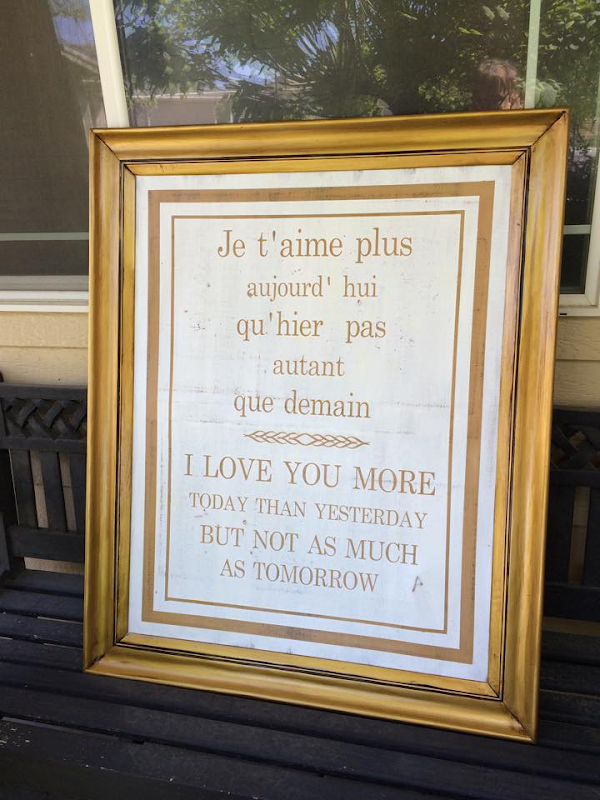 Je t'aime plus
aujourd' hui
qu'hier pas
autant
que demain
I LOVE YOU MORE
TODAY THAN YESTERDAY
BUT NOT AS MUCH
AS TOMORROW